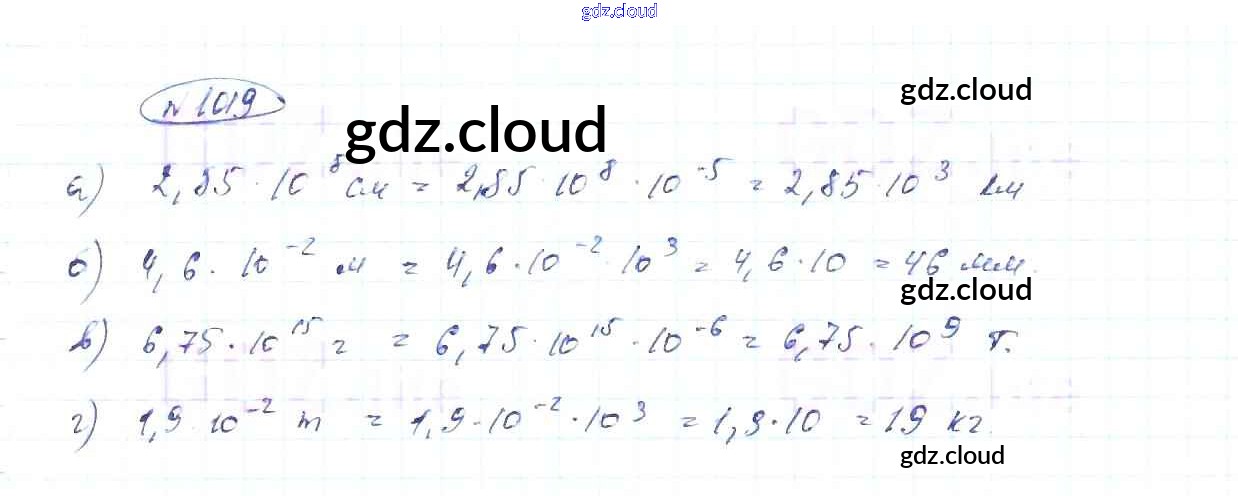 gdz.cloud
№ 1019
gdz.cloud
gdz.cloud
а) 2,85 · 10⁸ см = 2,85 · 10⁸ · 10⁻⁵ = 2,85 · 10³ км
б) 4,6 · 10⁻² м = 4,6 · 10⁻² · 10³ = 4,6 · 10 = 46 мм.
gdz.cloud
в) 6,75 · 10¹⁵ г = 6,75 · 10¹⁵ · 10⁻⁶ = 6,75 · 10⁹ т.
г) 1,9 · 10⁻² т = 1,9 · 10⁻² · 10³ = 1,9 · 10 = 19 кг.
gdz.cloud